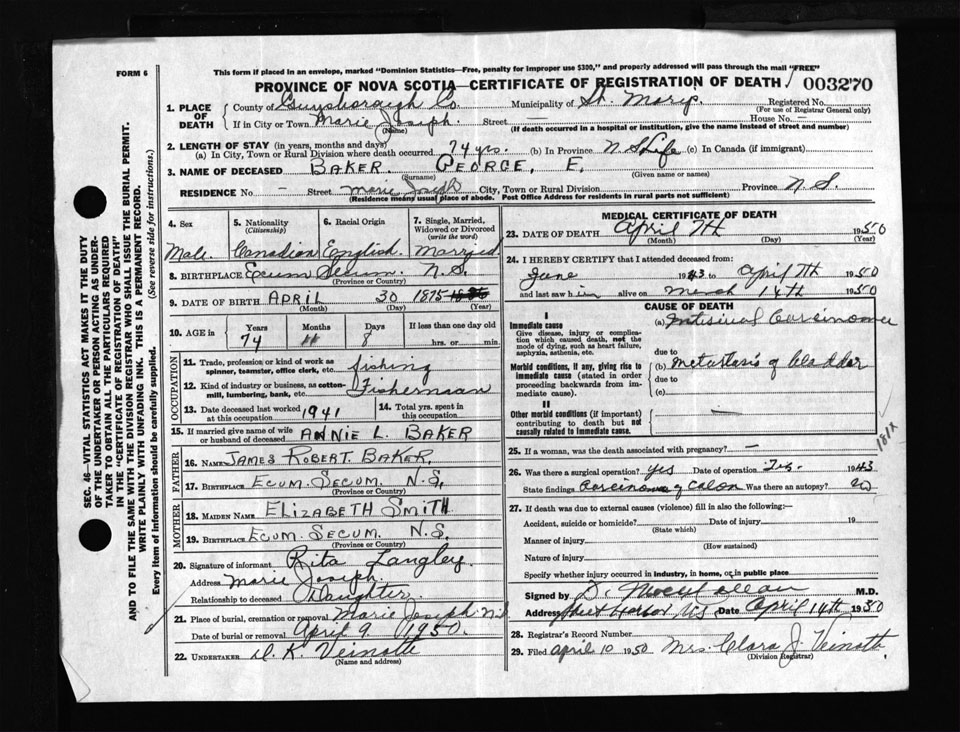 FORM 6
This form if placed in an envelope, marked "Dominion Statistics—Free, penalty for improper use $300," and properly addressed will pass through the mail "FREE"
PROVINCE OF NOVA SCOTIA—CERTIFICATE OF REGISTRATION OF DEATH
003270
SEC. 46—VITAL STATISTICS ACT MAKES IT THE DUTY
OF THE UNDERTAKER OR PERSON ACTING AS UNDER-
TAKER TO OBTAIN ALL THE PARTICULARS REQUIRED
IN THE "CERTIFICATE OF REGISTRATION OF DEATH"
AND TO FILE THE SAME WITH THE DIVISION REGISTRAR WHO SHALL ISSUE THE BURIAL PERMIT.
WRITE PLAINLY WITH UNFADING INK. THIS IS A PERMANENT RECORD.
Every item of Information should be carefully supplied. (See reverse side for instructions.)
1. PLACE OF DEATH
County of Guysborough Co. Municipality of St. Marys. Registered No.
(For use of Registrar General only)
If in City or Town Marie Joseph. Street — House No. —
(Name) (If death occurred in a hospital or institution, give the name instead of street and number)
2. LENGTH OF STAY (in years, months and days)
(a) In City, Town or Rural Division where death occurred 74 yrs. (b) In Province N S Life (c) In Canada (if immigrant)
3. NAME OF DECEASED BAKER. GEORGE, E.
(Surname) (Given name or names)
RESIDENCE No — Street Marie Joseph City, Town or Rural Division Province N. S.
(Residence means usual place of abode. Post Office Address for residents in rural parts not sufficient)
4. Sex 5. Nationality (Citizenship) 6. Racial Origin 7. Single, Married, Widowed or Divorced (write the word)
Male. Canadian English. Married
8. BIRTHPLACE Ecum Secum. N. S.
(Province or Country)
9. DATE OF BIRTH APRIL 30 1875
(Month) (Day) (Year)
10. AGE in Years Months Days If less than one day old
74 11 8 hrs. or min.
OCCUPATION
11. Trade, profession or kind of work as spinner, teamster, office clerk, etc. fishing
12. Kind of industry or business, as cotton-mill, lumbering, bank, etc. Fisherman
13. Date deceased last worked at this occupation 1941 14. Total yrs. spent in this occupation
15. If married give name of wife or husband of deceased ANNIE L. BAKER
FATHER
16. NAME JAMES ROBERT BAKER.
17. BIRTHPLACE ECUM. SECUM. N.S.
(Province or Country)
MOTHER
18. MAIDEN NAME ELIZABETH SMITH
19. BIRTHPLACE ECUM SECUM. N.S.
(Province or Country)
20. Signature of informant Rita Langley.
Address Marie Joseph.
Relationship to deceased Daughter
21. Place of burial, cremation or removal Marie Joseph N.S
Date of burial or removal April 9 1950.
22. UNDERTAKER D. K. Veinotte
(Name and address)
MEDICAL CERTIFICATE OF DEATH
23. DATE OF DEATH April 7th 1950
(Month) (Day) (Year)
24. I HEREBY CERTIFY that I attended deceased from:
June 1943 to April 7th 1950
and last saw him alive on March 14th 1950
CAUSE OF DEATH
I
Immediate cause
Give disease, injury or complication which caused death, not the mode of dying, such as heart failure, asphyxia, asthenia, etc.
(a) Intestinal Carcinoma
due to
Morbid conditions, if any, giving rise to immediate cause (stated in order proceeding backwards from immediate cause)
(b) metastasis of bladder
due to
(c)
II
Other morbid conditions (if important) contributing to death but not causally related to immediate cause. —
181X
25. If a woman, was the death associated with pregnancy? —
26. Was there a surgical operation? yes Date of operation 1943
State findings Carcinoma of Colon Was there an autopsy? no
27. If death was due to external causes (violence) fill in also the following:—
Accident, suicide or homicide? Date of injury 19
(State which)
Manner of injury
(How sustained)
Nature of injury
Specify whether injury occurred in industry, in home, or in public place
Signed by M.D.
Address Sheet Harbor NS Date April 14th 1950
28. Registrar's Record Number
29. Filed April 10 1950 Mrs. Clara J. Veinotte
(Division Registrar)